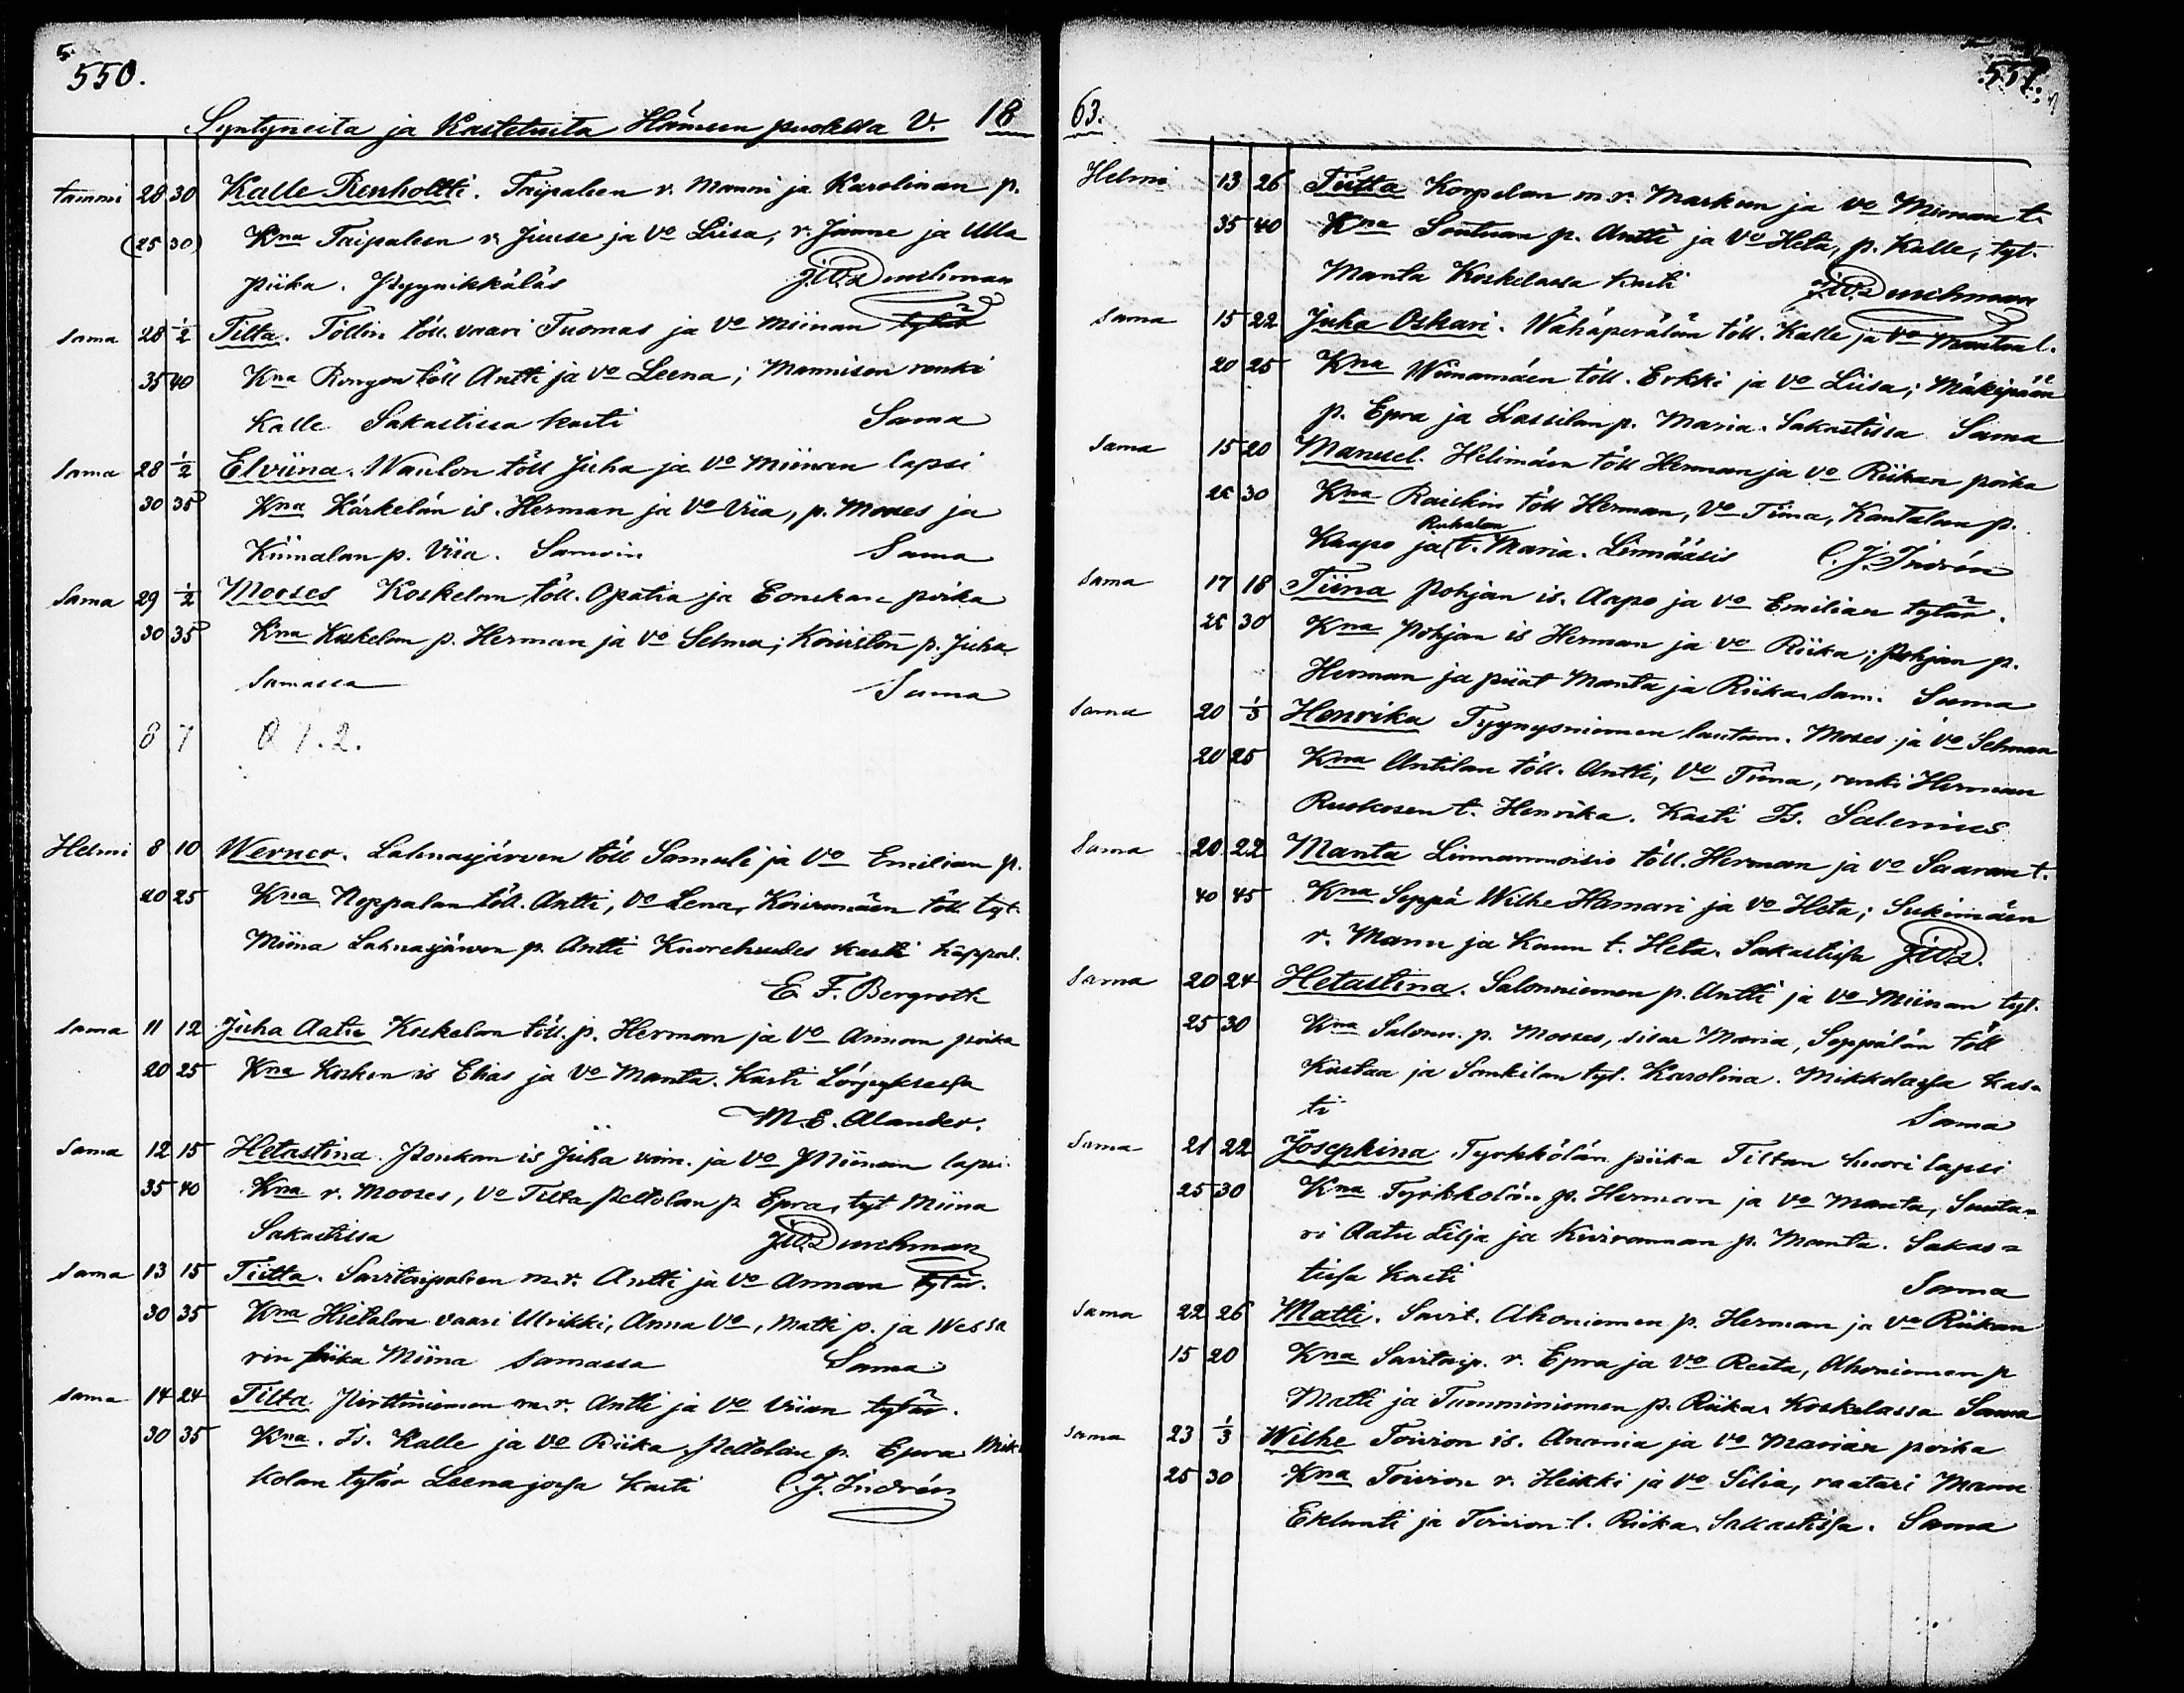 550.
Syntyneitä ja Kastetuita Hämeen puolella V. 18
tammi 28 30 Kalle Renholtti. Taipaleen r. Manni ja Karolinan p.
(25 30) Kna Taipaleen r. Juuse ja Vo Liisa, r. Janne ja Ulla
piika. Pyynikkäläs J.W. Durchman
sama 28 1/2 Tilta. Töllin töll. vaari Tuomas ja Vo Miinan tytär
35 40 Kna Rongon töll Antti ja Vo Leena; Mannisen renki
Kalle Sakastissa kasti Sama
Sama 28 1/2 Elviina. Waulon töll Juha ja Vo Miinan lapsi
30 35 Kna Kärkelän is. Herman ja Vo Viia, p. Moses ja
Kiimalan p. Viia. Samoin Sama
Sama 29 1/2 Mooses Koskelan töll. Opatia ja Eonikan poika
30 35 Kna Koskelan p. Herman ja Vo Selma; Koiviston p. Juha
Samassa Sama
8 7 Q 1.2.
Helmi 8 10 Werner. Lahnasjärven töll Samuli ja Vo Emilian p.
20 25 Kna Noppalan töll. Antti, Vo Lena, Koivumäen töll. tyt.
Miina Lahnasjärven p. Antti Kuorehvedes kasti kappal.
E. F. Bergroth
sama 11 12 Juha Aatu Koskelan töll. p. Herman ja Vo Annan poika
20 25 Kna Kosken is Elias ja Vo Manta. Kasti Längelmässä
M. E. Alander.
Sama 12 15 Hetastina. Ponkan is Juha ja Vo Miinan lapsi.
35 40 Kna r. Mooses, Vo Tilta Peltolan p. Epra, tyt Miina
Sakastissa J.W. Durchman
sama 13 15 Tiitta. Savitaipaleen m.r. Antti ja Vo Annan tytär.
30 35 Kna Hietalan vaari Ulrikki, Anna Vo, Matti p. ja Wessa
rin piika Miina samassa Sama
sama 14 24 Tilta Pirttiniemen m.r. Antti ja Vo Viian tytär.
30 35 Kna. Is. Kalle ja Vo Riika, Peltolan p. Epra Mik
kolan tytär Leena jossa kasti C. J. Indrén
63.
551.
Helmi 13 26 Tiitta Korpelan m.r. Markun ja Vo Miinan t.
35 40 Kna Sontuan p. Antti ja Vo Heta, p. Kalle, tyt.
Manta Koskelassa kasti J.W. Durchman
sama 15 22 Juha Oskari. Wähäperälän töll. Kalle ja Vo Mantan l.
20 25 Kna Wiinamäen töll. Erkki ja Vo Liisa; Mäkipään
p. Epra ja Lassilan p. Maria. Sakastissa Sama
sama 15 20 Manuel. Helimäen töll Herman ja Vo Riikan poika
25 30 Kna Raiskin töll Herman, Vo Tiina, Kantalan p.
Kaapo ja Ruhalan t. Maria. Linnääsis C. J. Indrén
Sama 17 18 Tiina Pohjan is. Aapo ja Vo Emilian tytär.
25 30 Kna Pohjan is Herman ja Vo Riika; Pohjan p.
Herman ja piiat Manta ja Riika. Sam. Sama
sama 20 1/3 Henrika Tyynysniemen lautam. Moses ja Vo Selman
20 25 Kna Antilan töll. Antti, Vo Tiina, renki Herman
Ruokosen t. Henrika. Kasti Fs. Salenius
Sama 20 22 Manta Linnanmoisio töll. Herman ja Vo Saaran t.
40 45 Kna Seppä Wilhe Hamari ja Vo Heta; Sukimäen
r. Mann ja Kann t. Heta. Sakastissa J.W.D.
Sama 20 24 Hetastina. Salonniemen p. Antti ja Vo Miinan tyt.
25 30 Kna Salonn. p. Mooses, sisar Maria, Seppälän töll
Kustaa ja Sankilan tyt. Karolina. Mikkolassa kas-
ti Sama
Sama 21 22 Josephina Tyrkkölän piika Tiltan huorilapsi
25 30 Kna Tyrkkölän p. Herman ja Vo Manta, Suuta-
ri Aatu Lilja ja Kuivanman p. Manta. Sakas-
tissa kasti Sama
sama 22 26 Matti. Savit. Ahoniemen p. Herman ja Vo Riikan
15 20 Kna Savitaip. r. Epra ja Vo Reeta, Ahoniemen p
Matti ja Tumminiemen p. Riika. Koskelassa Sama
sama 23 1/3 Wilhe Toivion is. Anania ja Vo Marian poika
25 30 Kna Toivion r. Heikki ja Vo Silia, raatari Manu
Eklunti ja Toivion t. Riika. Sakastissa. Sama